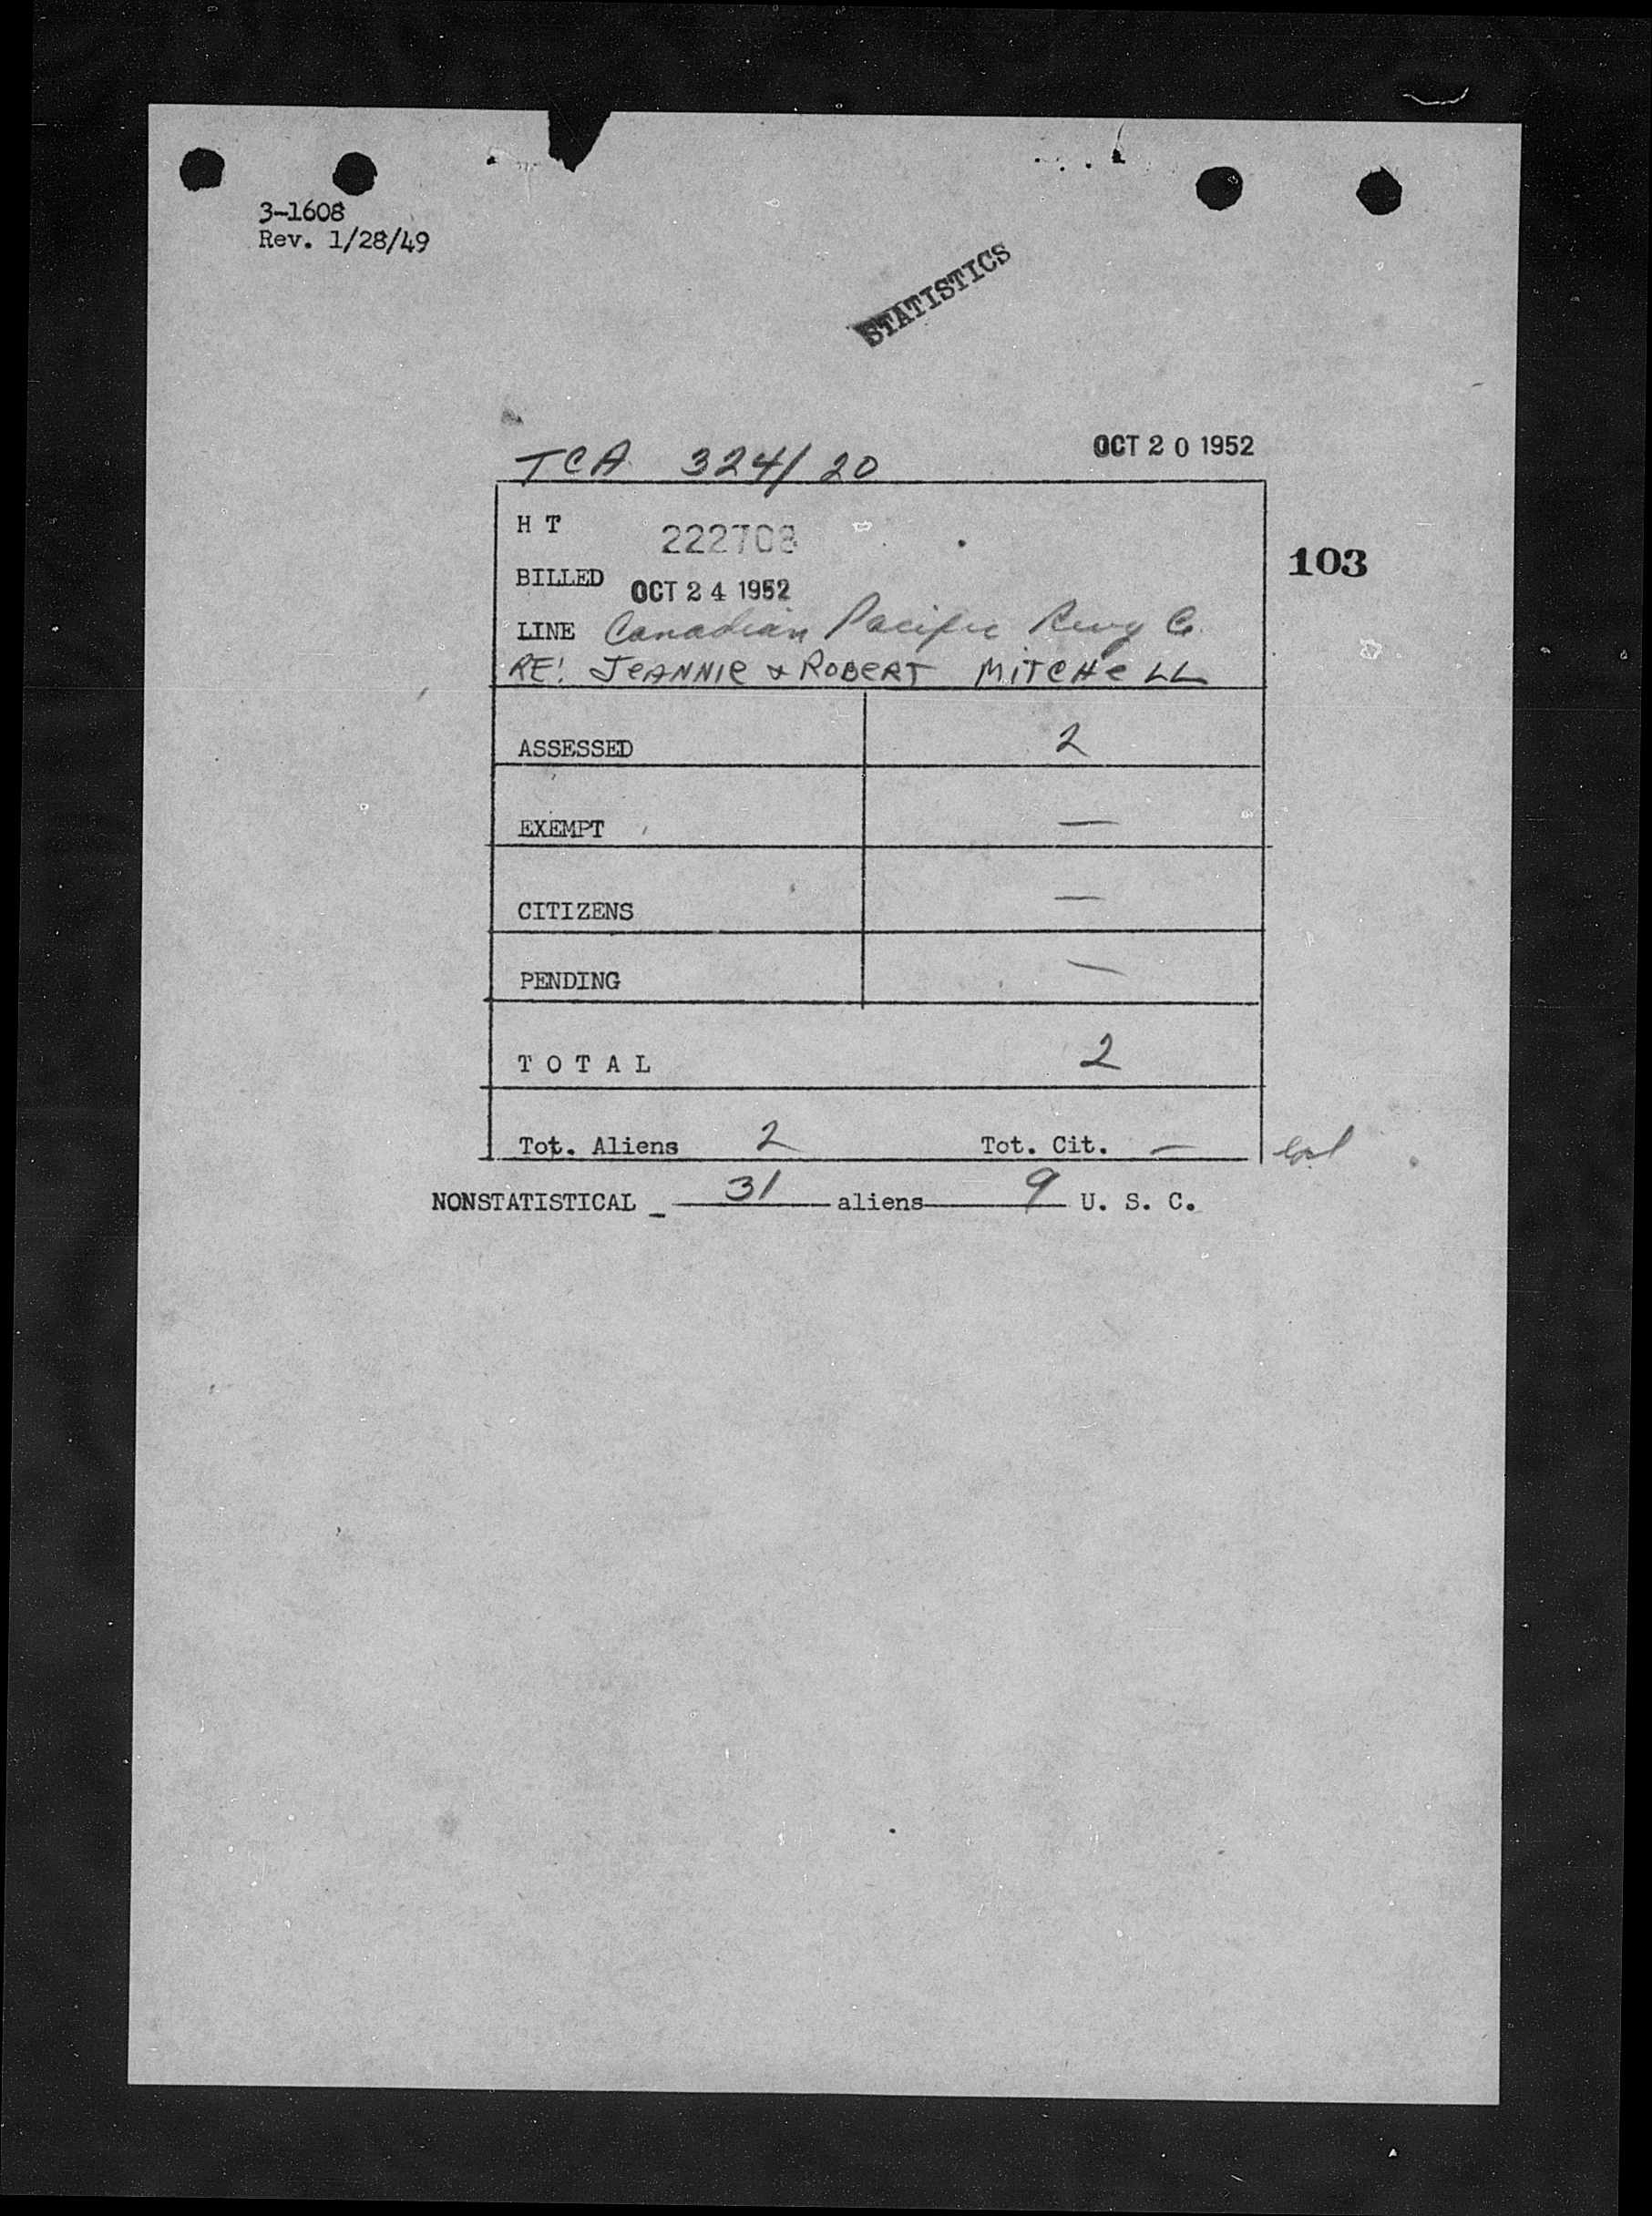 3-1608
Rev. 1/28/49
STATISTICS
TCA 324/20 OCT 20 1952
H T 222708
103
BILLED OCT 24 1952
LINE Canadian Pacific Rwy Co.
RE: JEANNIE & ROBERT MITCHELL
ASSESSED 2
EXEMPT —
CITIZENS —
PENDING —
T O T A L 2
Tot. Aliens 2 Tot. Cit. —
NONSTATISTICAL _ 31 aliens 9 U. S. C.